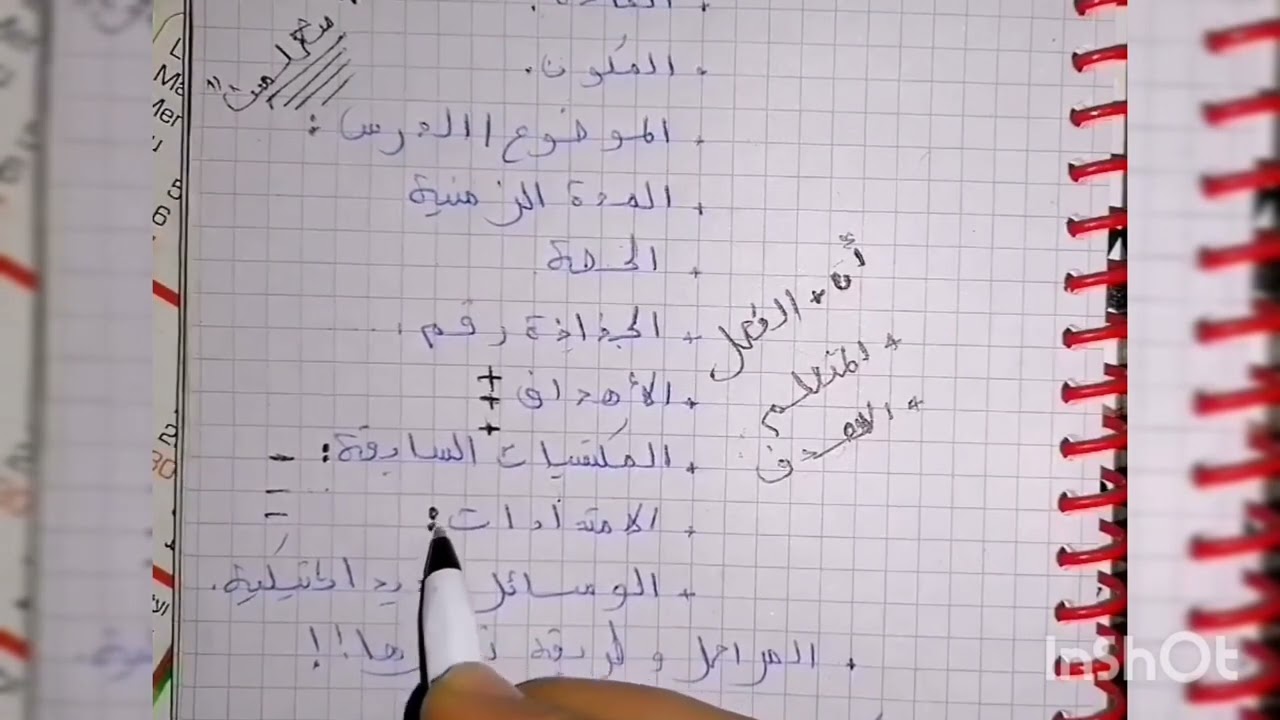 المكون.
الموضوع / الدرس:
المدة الزمنية
الحصة
+ الجذاذة رقم
+ الأهداف + + +
+ المكتسبات السابقة: -
+ الامتدادات: - -
+ الوسائل الديداكتيكية.
المراحل و طريقة !!
أن + الفعل
+ المتعلم
+ الهدف
InShOt